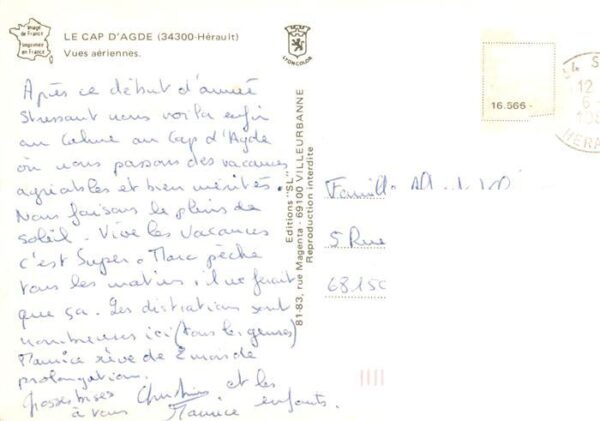 Image
de France
Imprimée
en France
LE CAP D'AGDE (34300-Hérault)
Vues aériennes.
LYONCOLOR
16.566 -
Après ce début d'année
stressant nous voilà enfin
au calme au Cap d'Agde
où nous passons des vacances
agréables et bien mérités.
Nous faisons le pleins de
soleil. Vive les vacances
c'est Super. Marc pêche
tous les matins, il ne ferait
que ça. Les distrations sont
nombreuses ici (tous les genres)
Maurice rêve de 2 mois de
prolongation.
grosses bises Christine et les
à vous Maurice enfants.
Editions "SL"
81-83, rue Magenta - 69100 VILLEURBANNE
Reproduction interdite
Famille
5 Rue
68150
12
6
HERA